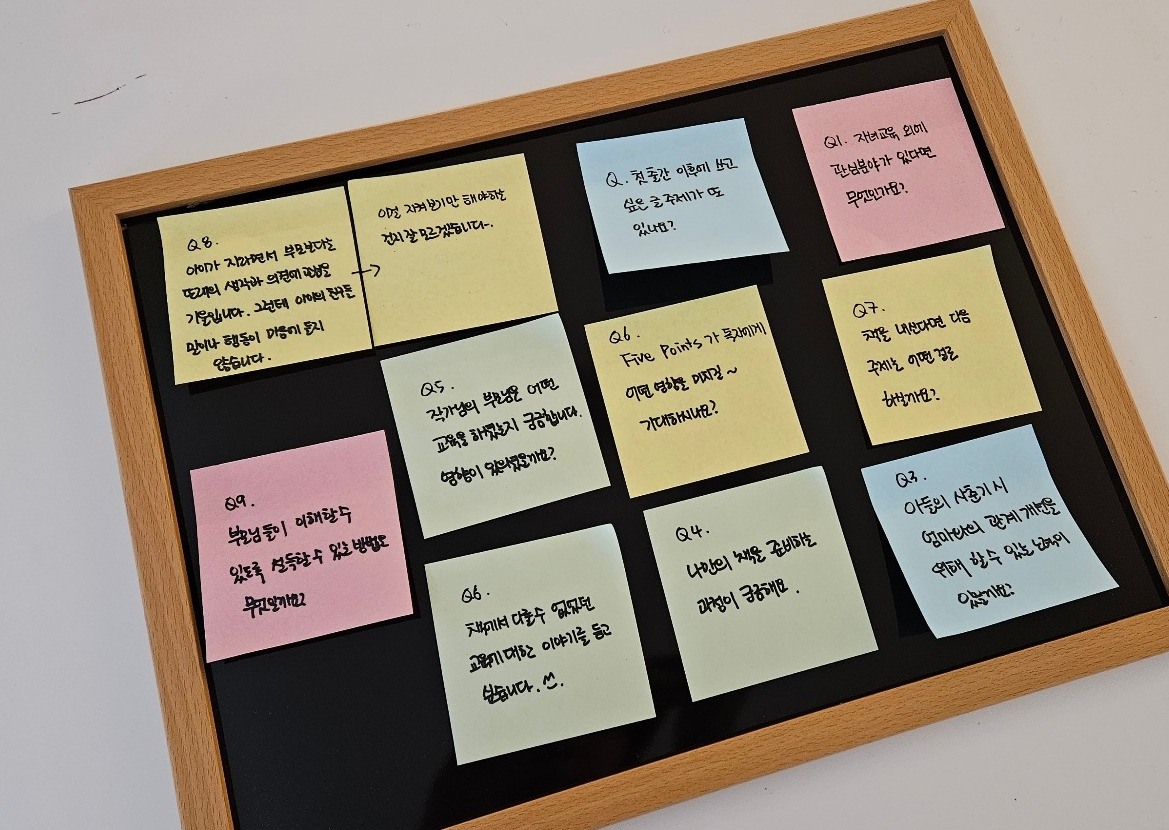 Q8.
아이가 자라면서 부모보다는
또래의 생각과 의견에 관심을
기울입니다. 그런데 아이의 친구들
말이나 행동이 마음에 들지
않습니다.
→
이걸 지켜보기만 해야하는
건지 잘 모르겠습니다~.
Q. 첫 출간 이후에 쓰고
싶은 글 주제가 또
있나요?
Q1. 자녀교육 외에
관심분야가 있다면
무엇인가요?
Q5.
작가님의 부모님은 어떤
교육을 하셨는지 궁금합니다.
영향이 있으셨을까요?
Q6.
Five Points 가 독자에게
어떤 영향을 미치길~
기대하시나요?
Q7.
책을 내신다면 다음
주제는 어떤 걸로
하실까요?
Q9.
부모님들이 이해할 수
있도록 설득할 수 있는 방법은
무엇일까요?
Q6.
책에서 다룰 수 없었던
교육에 대한 이야기를 듣고
싶습니다. ^^.
Q4.
나만의 책을 준비하는
과정이 궁금해요.
Q3.
아들의 사춘기 시
엄마와의 관계 개선을
위해 할 수 있는 노력이
있을까요?